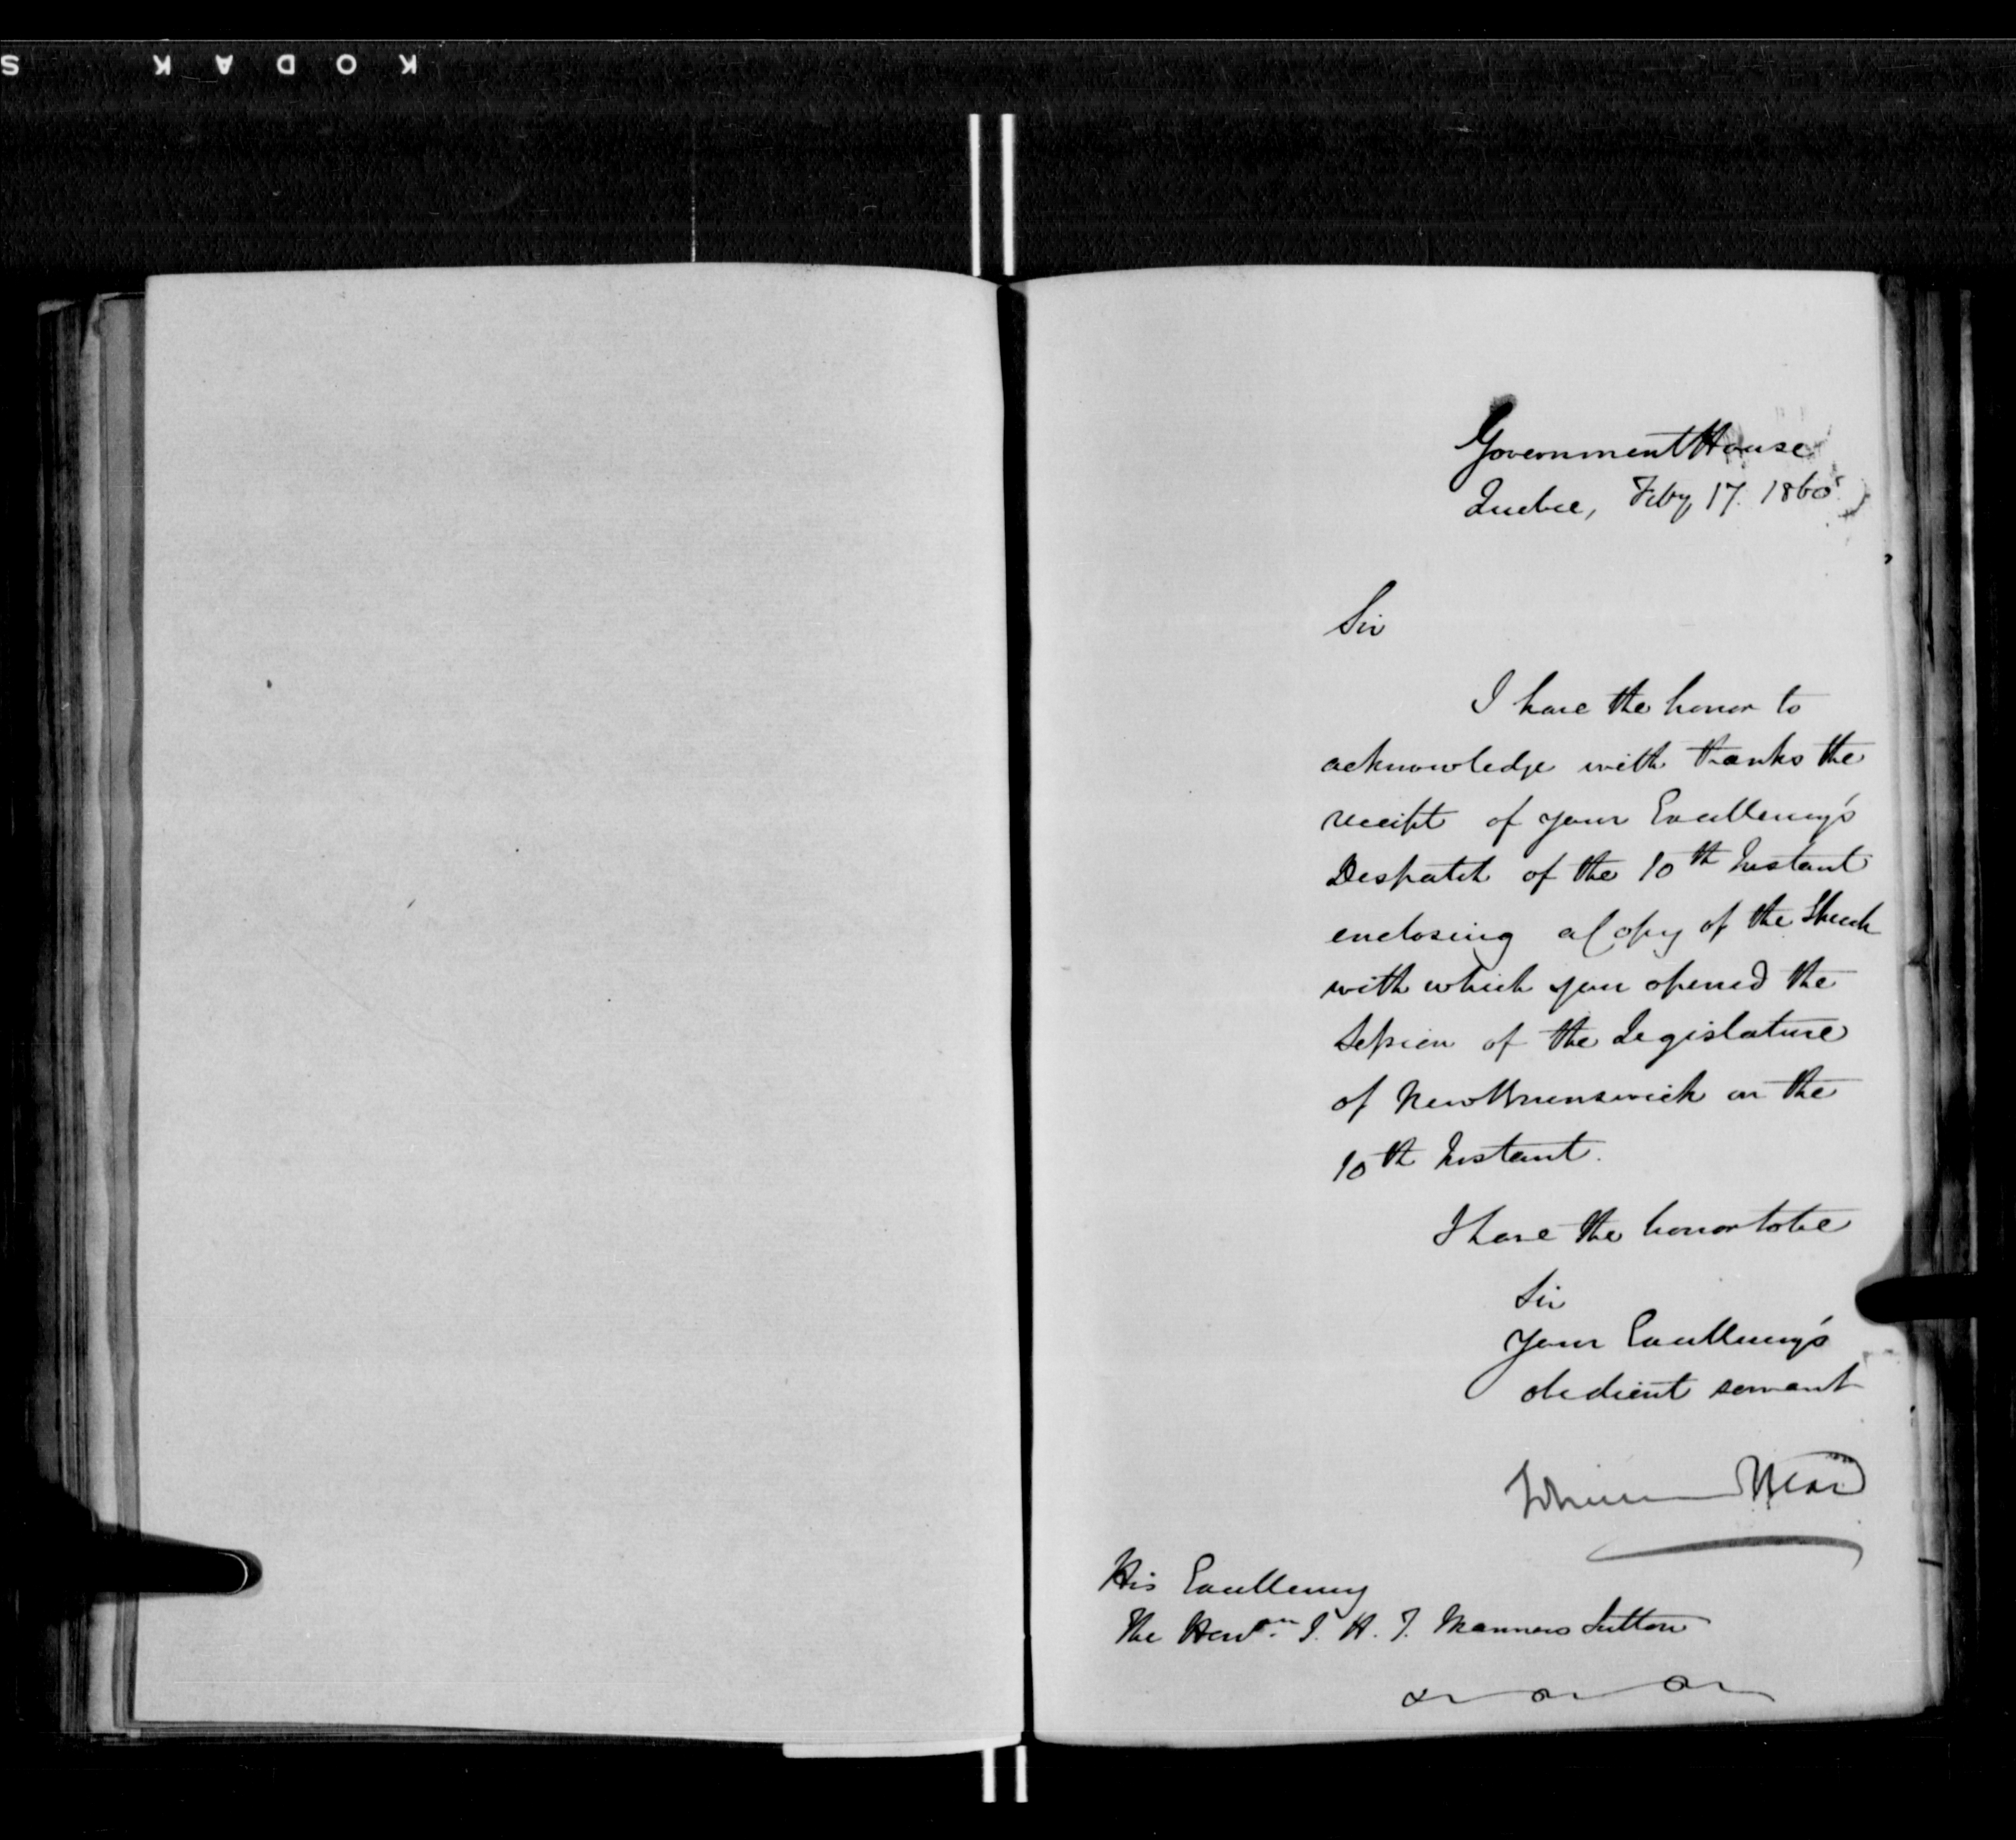 KODAK S
Government House
Quebec, Feby 17. 1860
Sir
I have the honor to
acknowledge with thanks the
receipt of your Excellency's
Despatch of the 10th Instant
enclosing a Copy of the Speech
with which you opened the
Session of the Legislature
of New Brunswick on the
10th Instant.
I have the honor to be
Sir
Your Excellency's
obedient servant
Head
His Excellency
The Honble. J. H. T. Manners Sutton